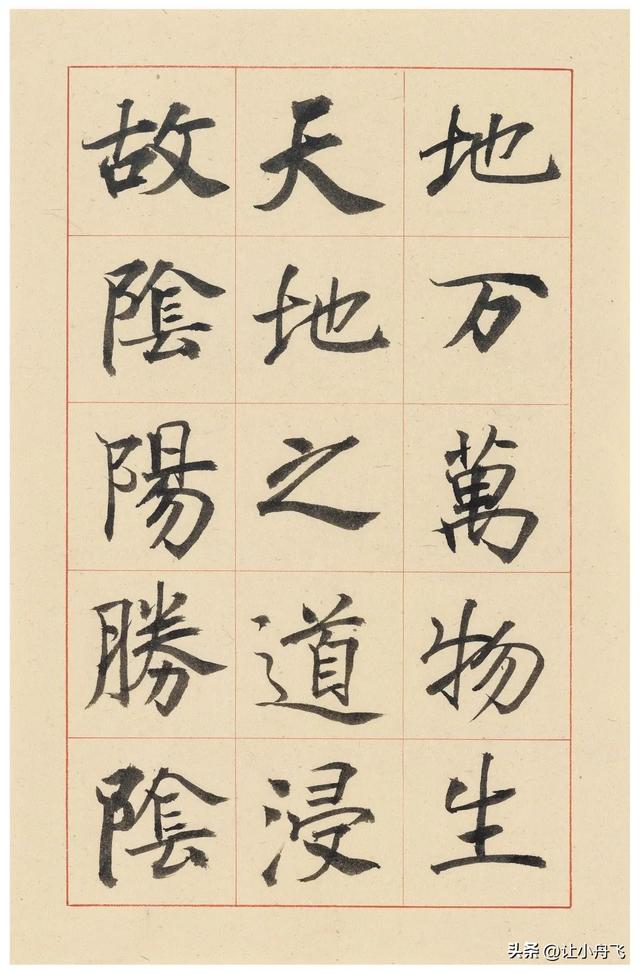 地万萬物生
天地之道浸
故陰陽勝陰
头条 @让小舟飞